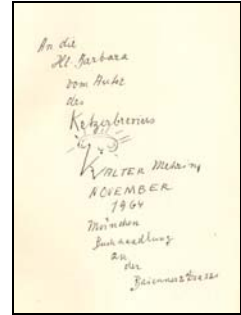 An die
Hl. Barbara
vom Autor
des
Ketzerbreviers
WALTER Mehring
NOVEMBER
1964
München
Buchhandlung
an
der
Briennerstrasse